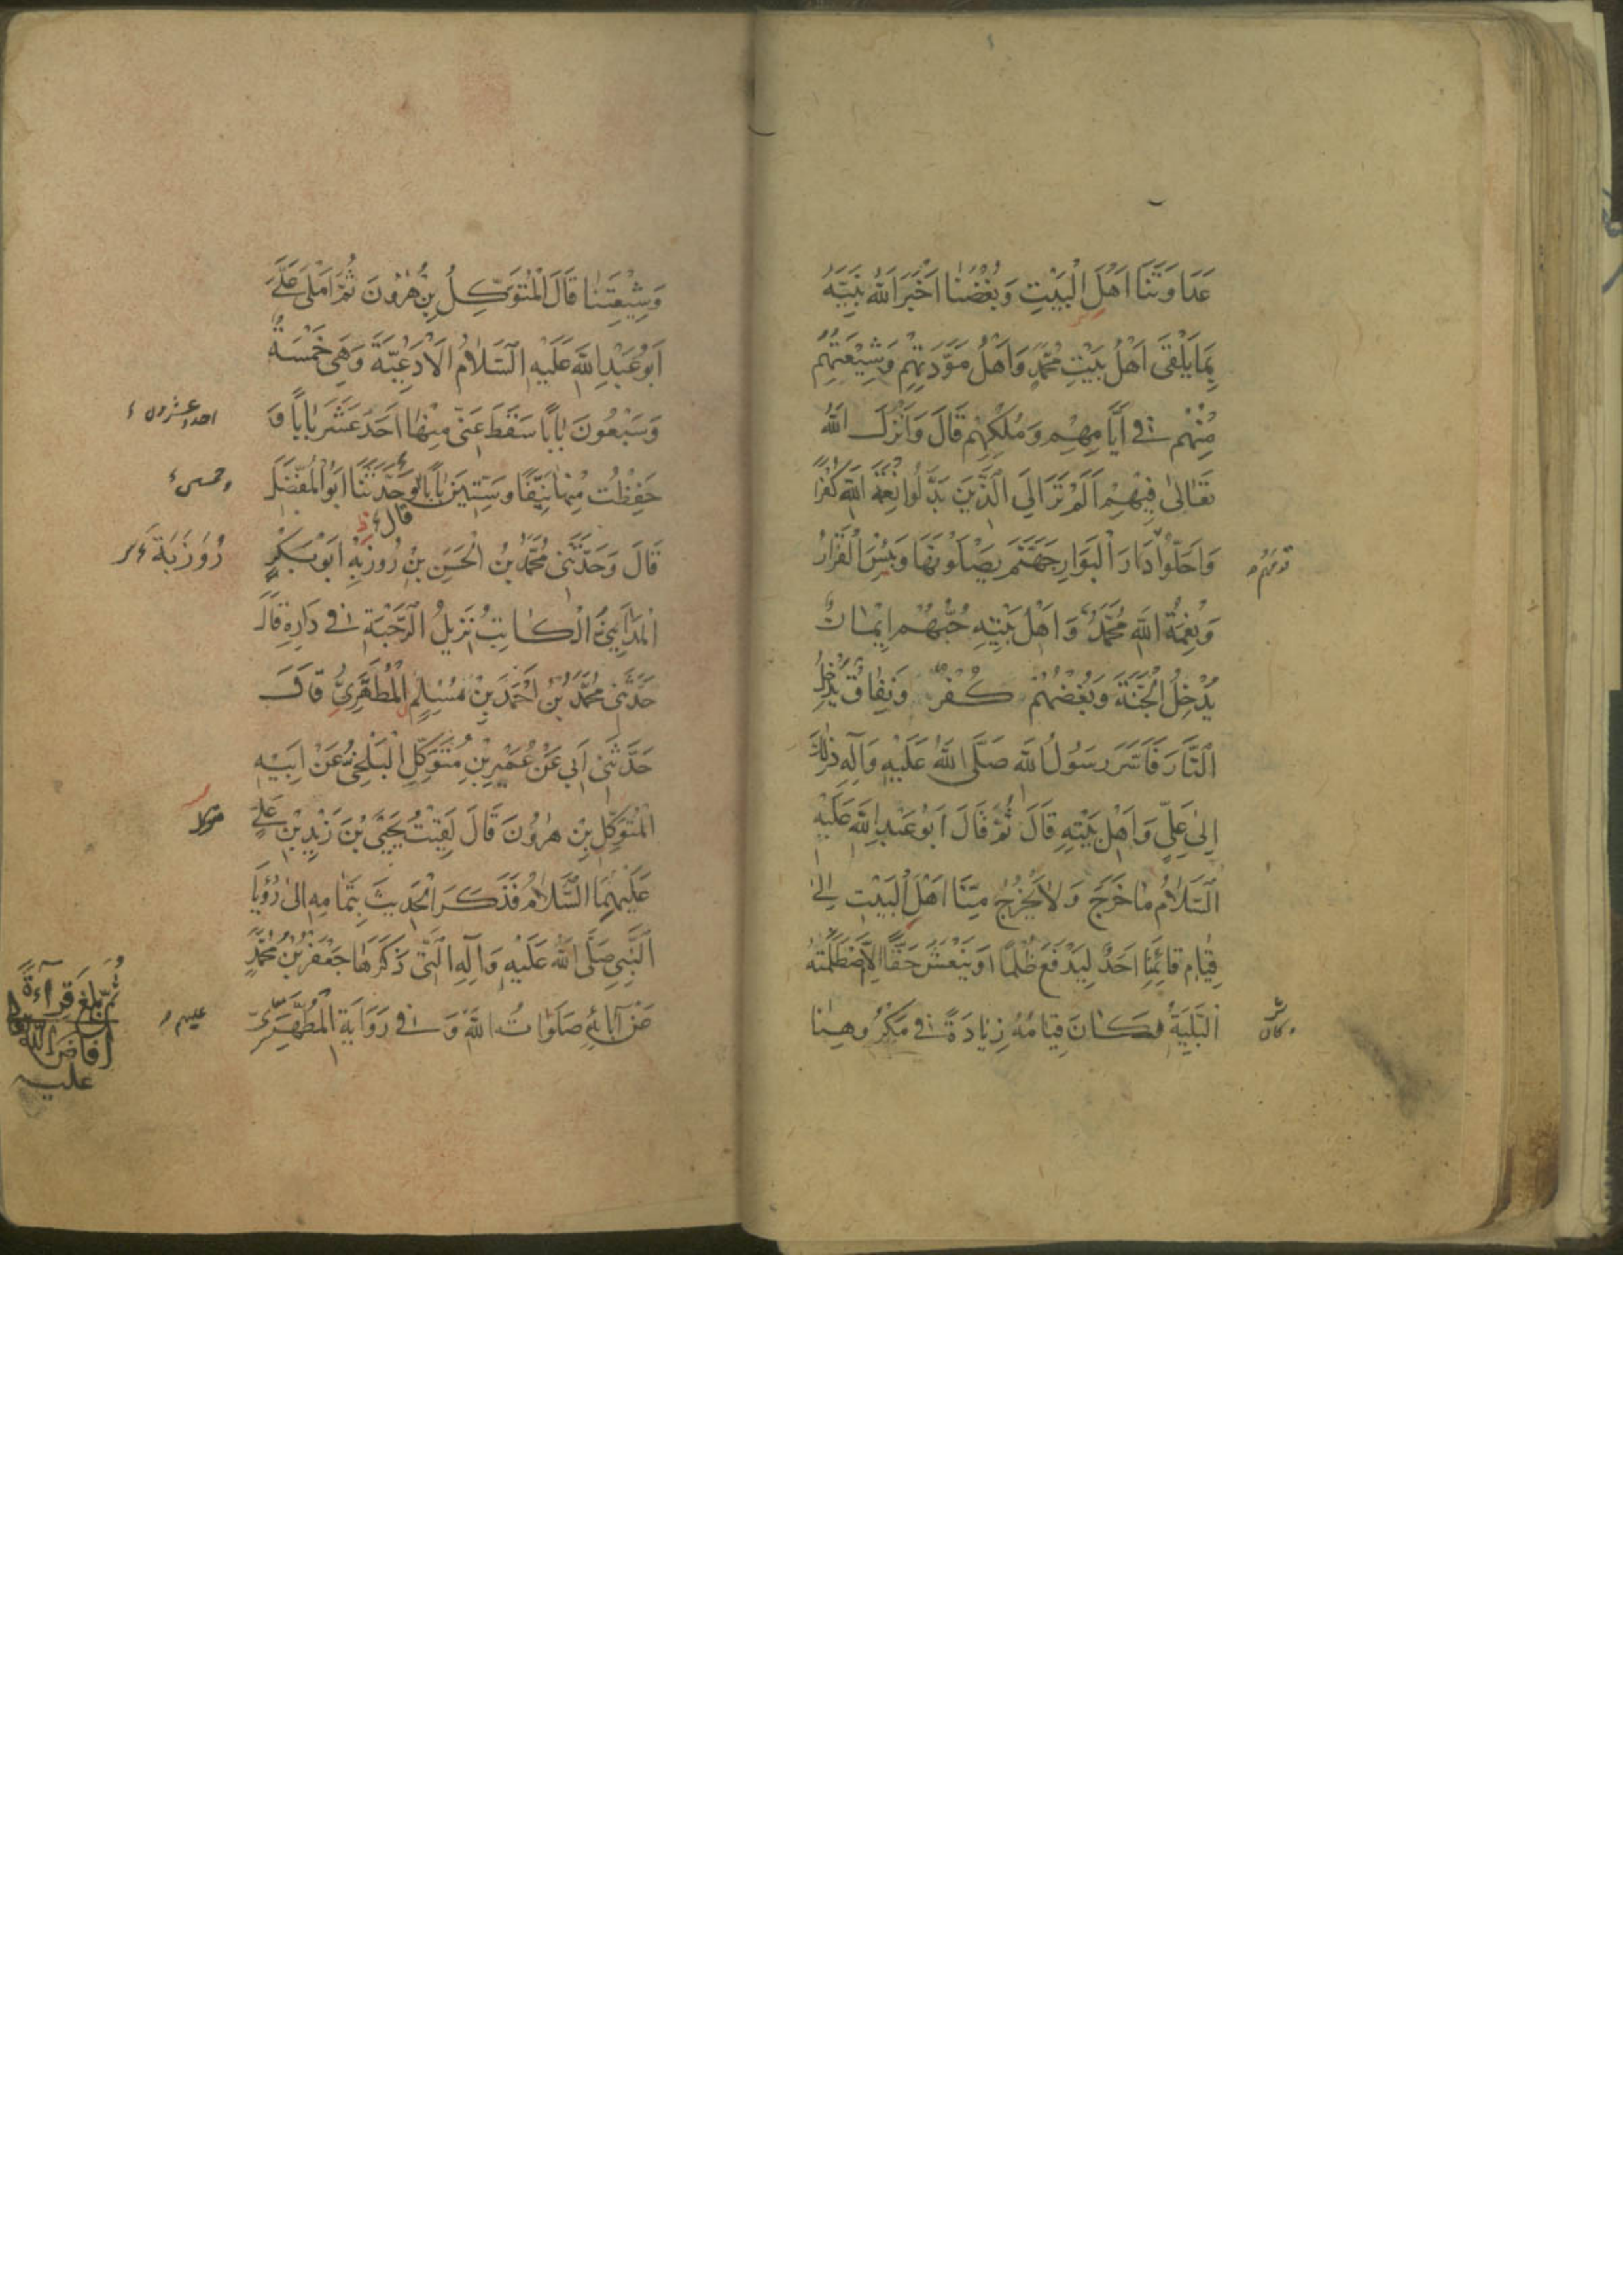 عَدَاوَتَنَا اَهْلَ الْبَيْتِ وَبُغْضَنَا اَخْبَرَ اللهُ نَبِيَّهُ
بِمَا يَلْقَى اَهْلُ بَيْتِ مُحَمَّدٍ وَاَهْلُ مَوَدَّتِهِمْ وَشِيْعَتِهِمْ
مِنْهُمْ فِي اَيَّامِهِمْ وَمُلْكِهِمْ قَالَ وَاَنْزَلَ اللهُ
تَعَالىٰ فِيْهِمْ اَلَمْ تَرَ اِلَى الَّذِيْنَ بَدَّلُوا نِعْمَةَ اللهِ كُفْرًا
وَاَحَلُّوْا دَارَ الْبَوَارِ جَهَنَّمَ يَصْلَوْنَهَا وَبِئْسَ الْقَرَارُ
وَنِعْمَةُ اللهِ مُحَمَّدٌ وَاَهْلُ بَيْتِهِ حُبُّهُمْ اِيْمَانٌ
يُدْخِلُ الْجَنَّةَ وَبُغْضُهُمْ كُفْرٌ وَنِفَاقٌ يُدْخِلُ
النَّارَ فَاَسَرَّ رَسُولُ اللهِ صَلَّى اللهُ عَلَيْهِ وَآلِهِ ذٰلِكَ
اِلىٰ عَلِيٍّ وَاَهْلِ بَيْتِهِ قَالَ ثُمَّ قَالَ اَبُوْ عَبْدِ اللهِ عَلَيْهِ
السَّلَامُ مَا خَرَجَ وَلَا يَخْرُجُ مِنَّا اَهْلَ الْبَيْتِ اِلىٰ
قِيَامِ قَائِمِنَا اَحَدٌ لِيَدْفَعَ ظُلْمًا اَوْ يَنْعَشَ حَقًّا اِلَّا اصْطَلَمَتْهُ
الْبَلِيَّةُ وَكَانَ قِيَامُهُ زِيَادَةً فِي مَكْرُوهِنَا
وكان
وَشِيْعَتِنَا قَالَ الْمُتَوَكِّلُ بْنُ هٰرُوْنَ ثُمَّ اَمْلىٰ عَلَيَّ
اَبُوْ عَبْدِ اللهِ عَلَيْهِ السَّلَامُ الْاَدْعِيَةَ وَهِيَ خَمْسَةٌ
وَسَبْعُونَ بَابًا سَقَطَ عَنِّي مِنْهَا اَحَدَ عَشَرَ بَابًا وَ
احد عشرون
حَفِظْتُ مِنْهَا نَيِّفًا وَسِتِّيْنَ بَابًا وَحَدَّثَنَا اَبُو الْمُفَضَّلِ
قال
قَالَ وَحَدَّثَنِي مُحَمَّدُ بْنُ الْحَسَنِ بْنِ رُوْزْبِهْ اَبُوْ بَكْرٍ
رُوْزَبَة
الْمَدَائِنِيُّ الْكَاتِبُ نَزِيلُ الرَّحْبَةِ فِي دَارِهِ قَالَ
حَدَّثَنِي مُحَمَّدُ بْنُ اَحْمَدَ بْنِ مُسْلِمٍ الْمُطَهَّرِيُّ قَالَ
حَدَّثَنِي اَبِي عَنْ عُمَيْرِ بْنِ مُتَوَكِّلِ الْبَلْخِيِّ عَنْ اَبِيْهِ
الْمُتَوَكِّلِ بْنِ هٰرُوْنَ قَالَ لَقِيْتُ يَحْيَى بْنَ زَيْدِ بْنِ عَلِيٍّ
متوكل
عَلَيْهِمَا السَّلَامُ فَذَكَرَ الْحَدِيْثَ بِتَمَامِهِ اِلىٰ رُؤْيَا
النَّبِيِّ صَلَّى اللهُ عَلَيْهِ وَآلِهِ الَّتِي ذَكَرَهَا جَعْفَرُ بْنُ مُحَمَّدٍ
عَنْ آبَائِهِ صَلَوَاتُ اللهِ وَ فِي رِوَايَةِ الْمُطَهَّرِيِّ
عليهم
ثُمَّ بَلَغَ قِرَاءَةً
اَفَاضَ اللهُ
عليه